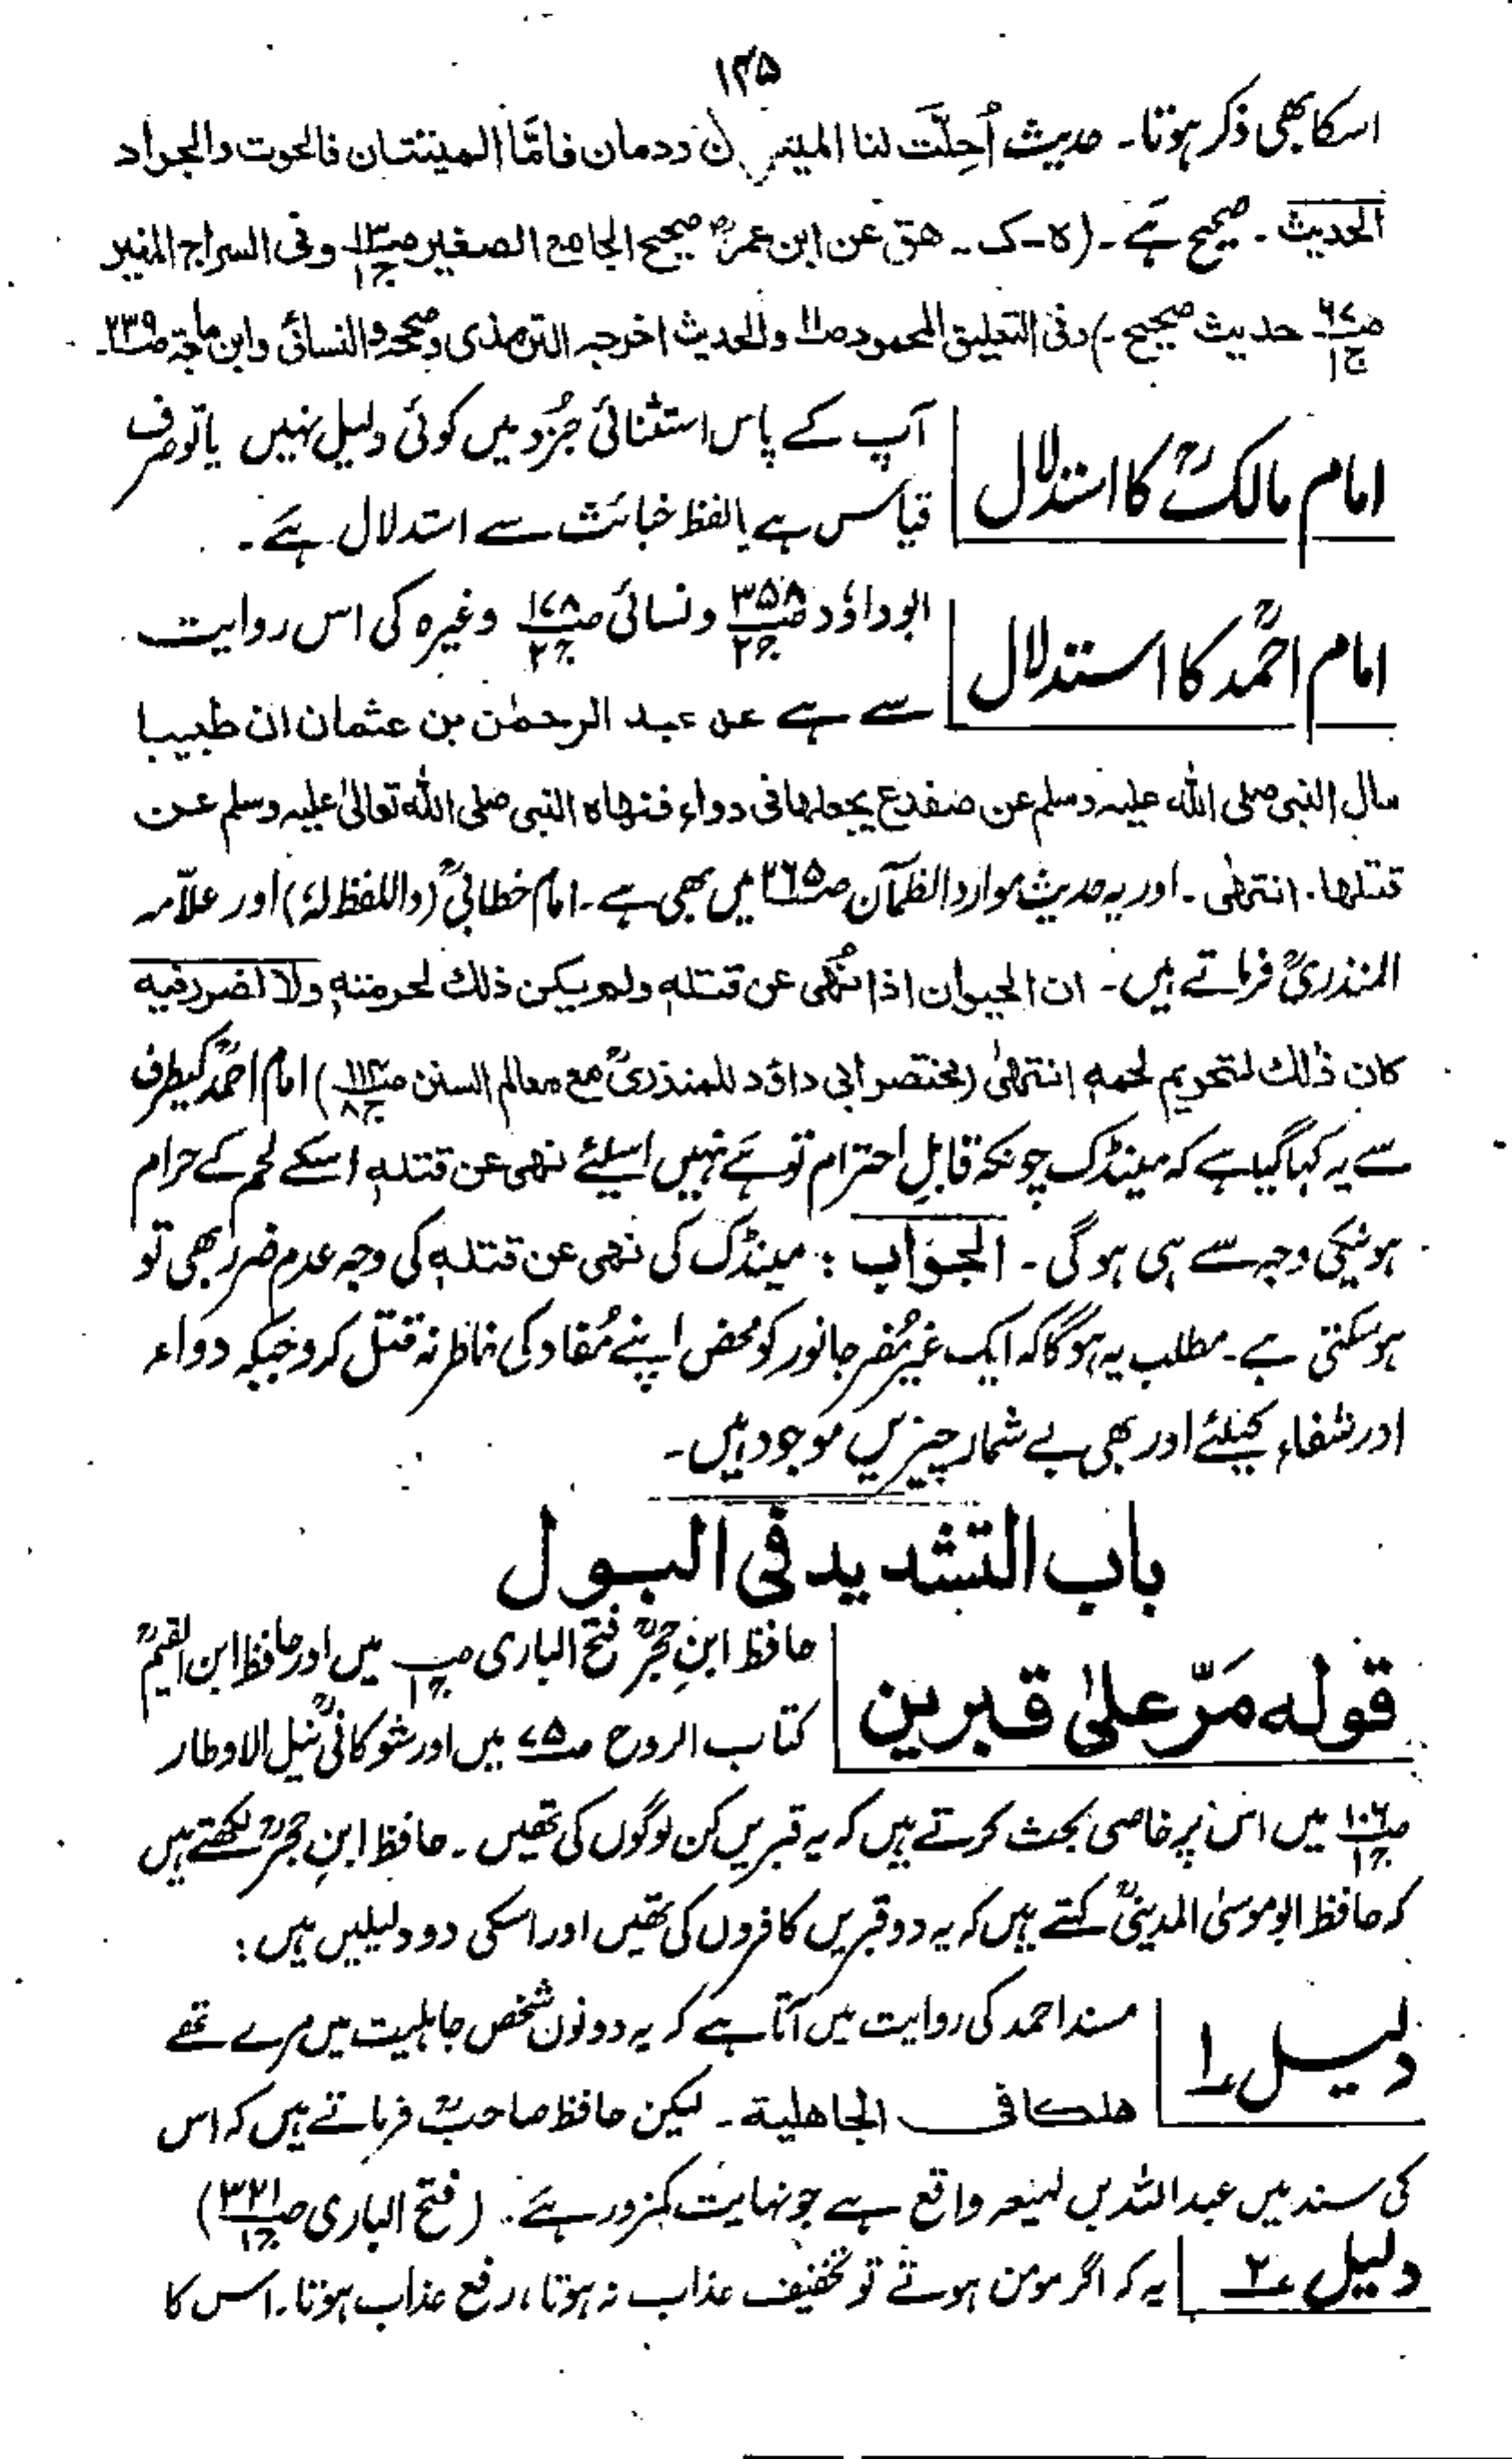 ۱۴۵
اسکا بھی ذکر ہوتا۔ حدیث اُحِلَّت لنا المیتتان ودمان فامَّا المیتتان فالحوت والجراد
الحدیث۔ صحیح ہے۔ (ہ۔ک۔ ھق عن ابن عمرؓ صحیح الجامع الصغیر ص۱۳ ج۱ وفی السراج المنیر
ص۶۷ ج۱ حدیث صحیح۔) وفی التعلیق المحمود ص۱۱ والحدیث اخرجہ الترمذی وصححہ والنسائی وابن ماجۃ ص۲۳۹۔
امام مالکؒ کا استدلال
آپ کے پاس استثنائی جُزو میں کوئی دلیل نہیں یا تو صرف
قیاس ہے یا لفظ خبائث سے استدلال ہے۔
امام احمدؒ کا استدلال
ابوداؤد ص۳۵۸ ج۲ ونسائی ص۱۷۸ ج۲ وغیرہ کی اس روایت
سے ہے عن عبد الرحمٰن بن عثمان ان طبیبا
سال النبی صلی اللہ علیہ وسلم عن ضفدع یجعلھا فی دواء فنھاہ النبی صلی اللہ تعالیٰ علیہ وسلم عن
قتلھا۔ انتھٰی۔ اور یہ حدیث موارد الظمآن ص۳۶۵ میں بھی ہے۔ امام خطابیؒ (واللفظ لہٗ) اور علاّمہ
المنذریؒ فرماتے ہیں۔ ان الحیوان اذا نُھی عن قتلہٖ ولم یکن ذلك لحرمتہٖ ولا لضرر فیہ
کان ذٰلك لتحریم لحمہ انتھٰی (مختصر ابی داؤد للمنذریؒ مع معالم السنن ص۱۱۲ ج۸) امام احمدؒ کیطرف
سے یہ کہا گیا ہے کہ مینڈک چونکہ قابلِ احترام تو ہے نہیں اسلیئے نھی عن قتلہٖ اسکے لحم کے حرام
ہونیکی وجہ سے ہی ہوگی۔ الجواب : مینڈک کی نھی عن قتلہٖ کی وجہ عدم ضرر بھی تو
ہوسکتی ہے۔ مطلب یہ ہوگا کہ ایک غیر مُضر جانور کو محض اپنے مُفاد کی خاطر نہ قتل کرو جبکہ دواء
اور شفاء کیلئے اور بھی بے شمار چیزیں موجود ہیں۔
باب التشدید فی البول
قولہ مَرّ علیٰ قبرین
حافظ ابنِ حجرؒ فتح الباری ج۱ میں اور حافظ ابن القیمؒ
کتاب الروح ص۷۵ میں اور شوکانیؒ نیل الاوطار
ص۱۰۶ ج۱ میں اس پر خاصی بحث کرتے ہیں کہ یہ قبریں کن لوگوں کی تھیں۔ حافظ ابنِ حجرؒ لکھتے ہیں
کہ حافظ ابو موسیٰ المدینیؒ کہتے ہیں کہ یہ دو قبریں کافروں کی تھیں اور اسکی دو دلیلیں ہیں :
دلیل ۱
مسند احمد کی روایت میں آتا ہے کہ یہ دونوں شخص جاہلیت میں مرے تھے
ھلکا فی الجاھلیة۔ لیکن حافظ صاحبؒ فرماتے ہیں کہ اس
کی سند میں عبد اللہ بن لہیعہ واقع ہے جو نہایت کمزور ہے۔ (فتح الباری ص۳۲۱ ج۱)
دلیل ۲
یہ کہ اگر مومن ہوتے تو تخفیف عذاب نہ ہوتا، رفع عذاب ہوتا۔ اس کا